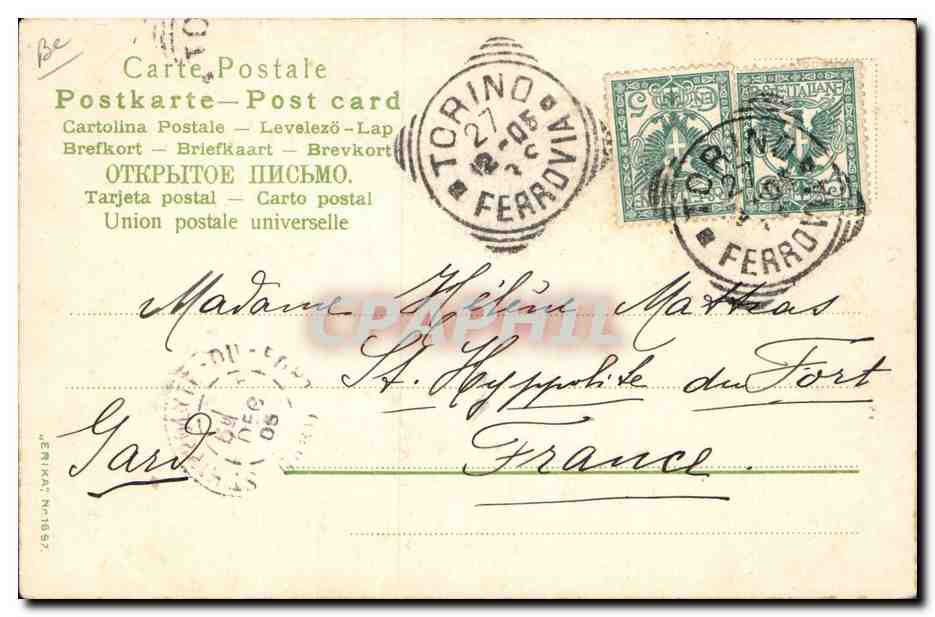 Be
TO
Carte Postale
Postkarte — Post card
Cartolina Postale — Levelező-Lap
Brefkort — Briefkaart — Brevkort
ОТКРЫТОЕ ПИСЬМО.
Tarjeta postal — Carto postal
Union postale universelle
TORINO
27
12-05
FERROVIA
5
POSTE ITALIANE
TORINO
27
FERROVIA
Madame Hélène Mathas
CPAPHIL
St. Hyppolite du Fort
Gard France.
DU-FORT
DEC
05
„ERIKA" No 1667.